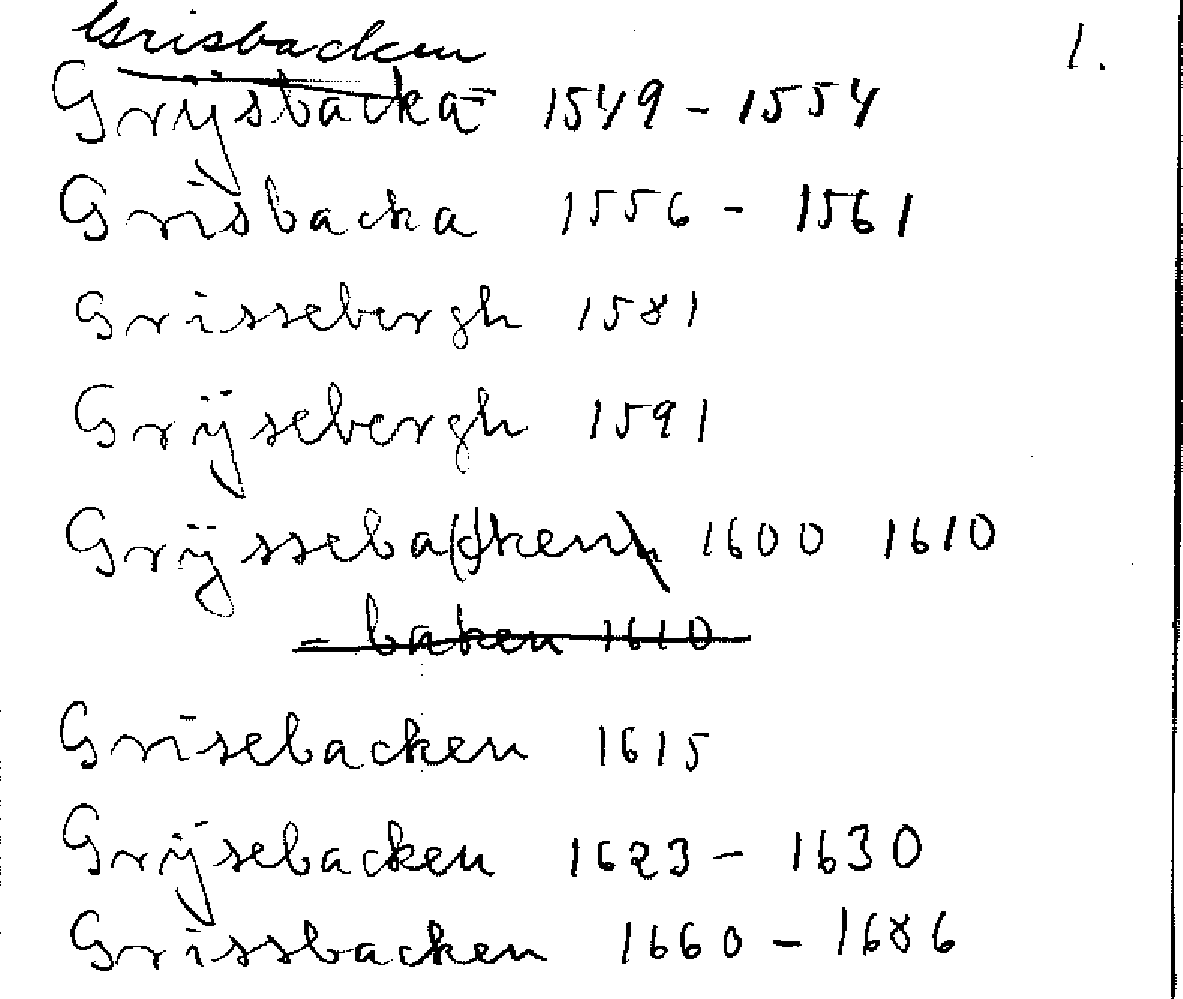 Grisbacken 1.
Grÿsbacka 1549 - 1554
Grisbacka 1556 - 1561
Grissebergh 1581
Grÿsebergh 1591
Grÿsseba(c)ken 1600 1610
- baken 1610
Grisebacken 1615
Grÿsebacken 1623 - 1630
Grissbacken 1660 - 1686